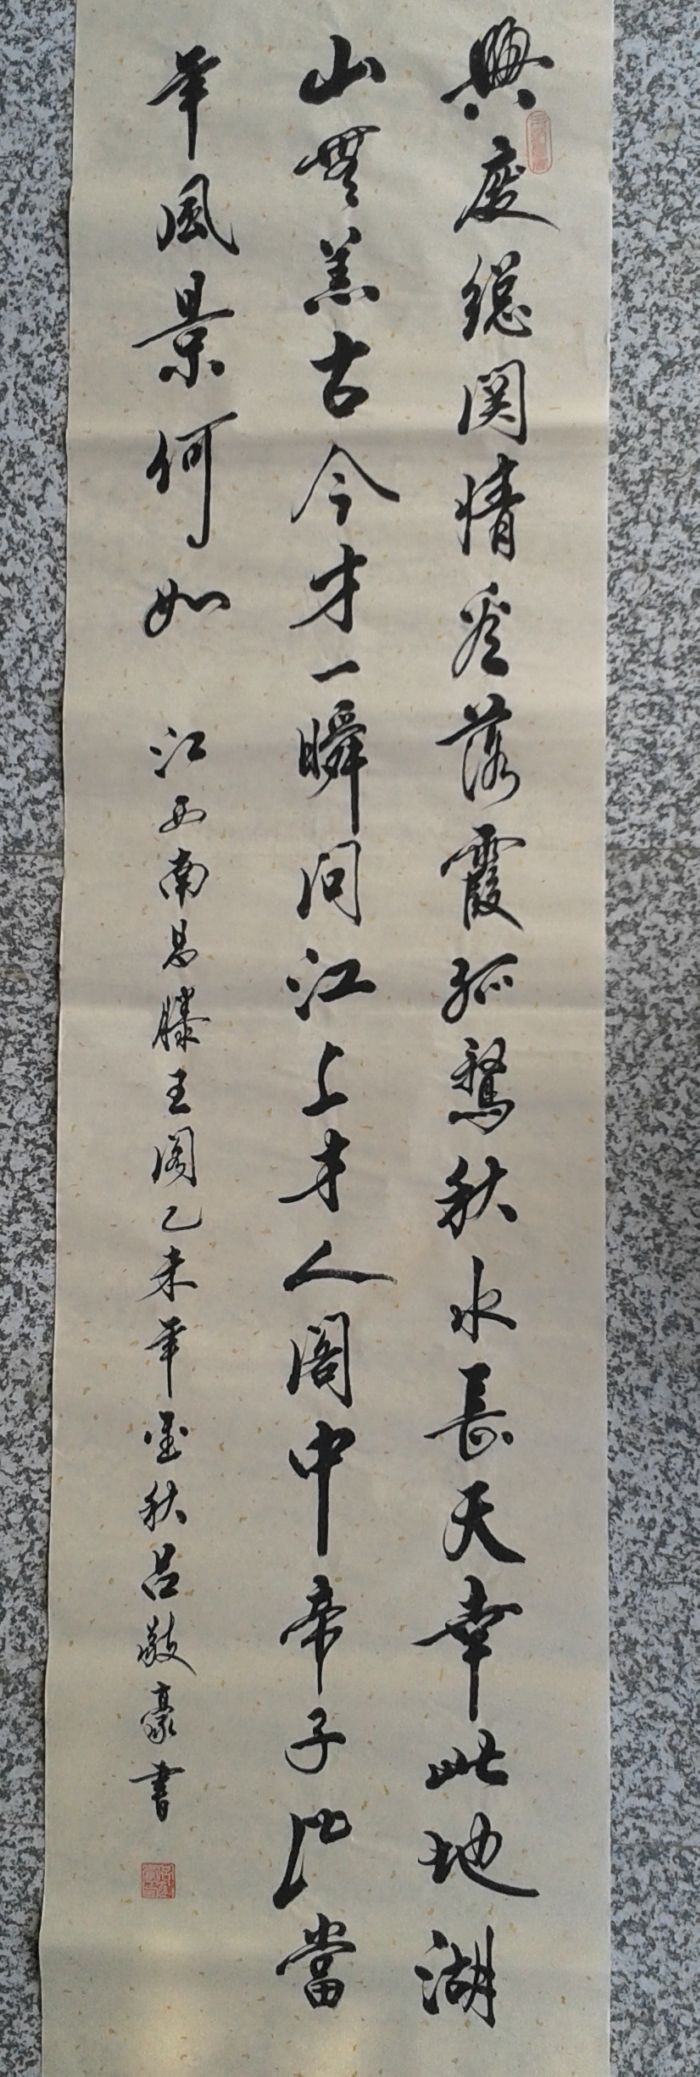 興廢總関情看落霞孤鶩秋水長天幸此地湖
山無恙古今才一瞬问江上才人阁中帝子比當
年風景何如 江西南昌滕王阁乙未年金秋吕敬豪書